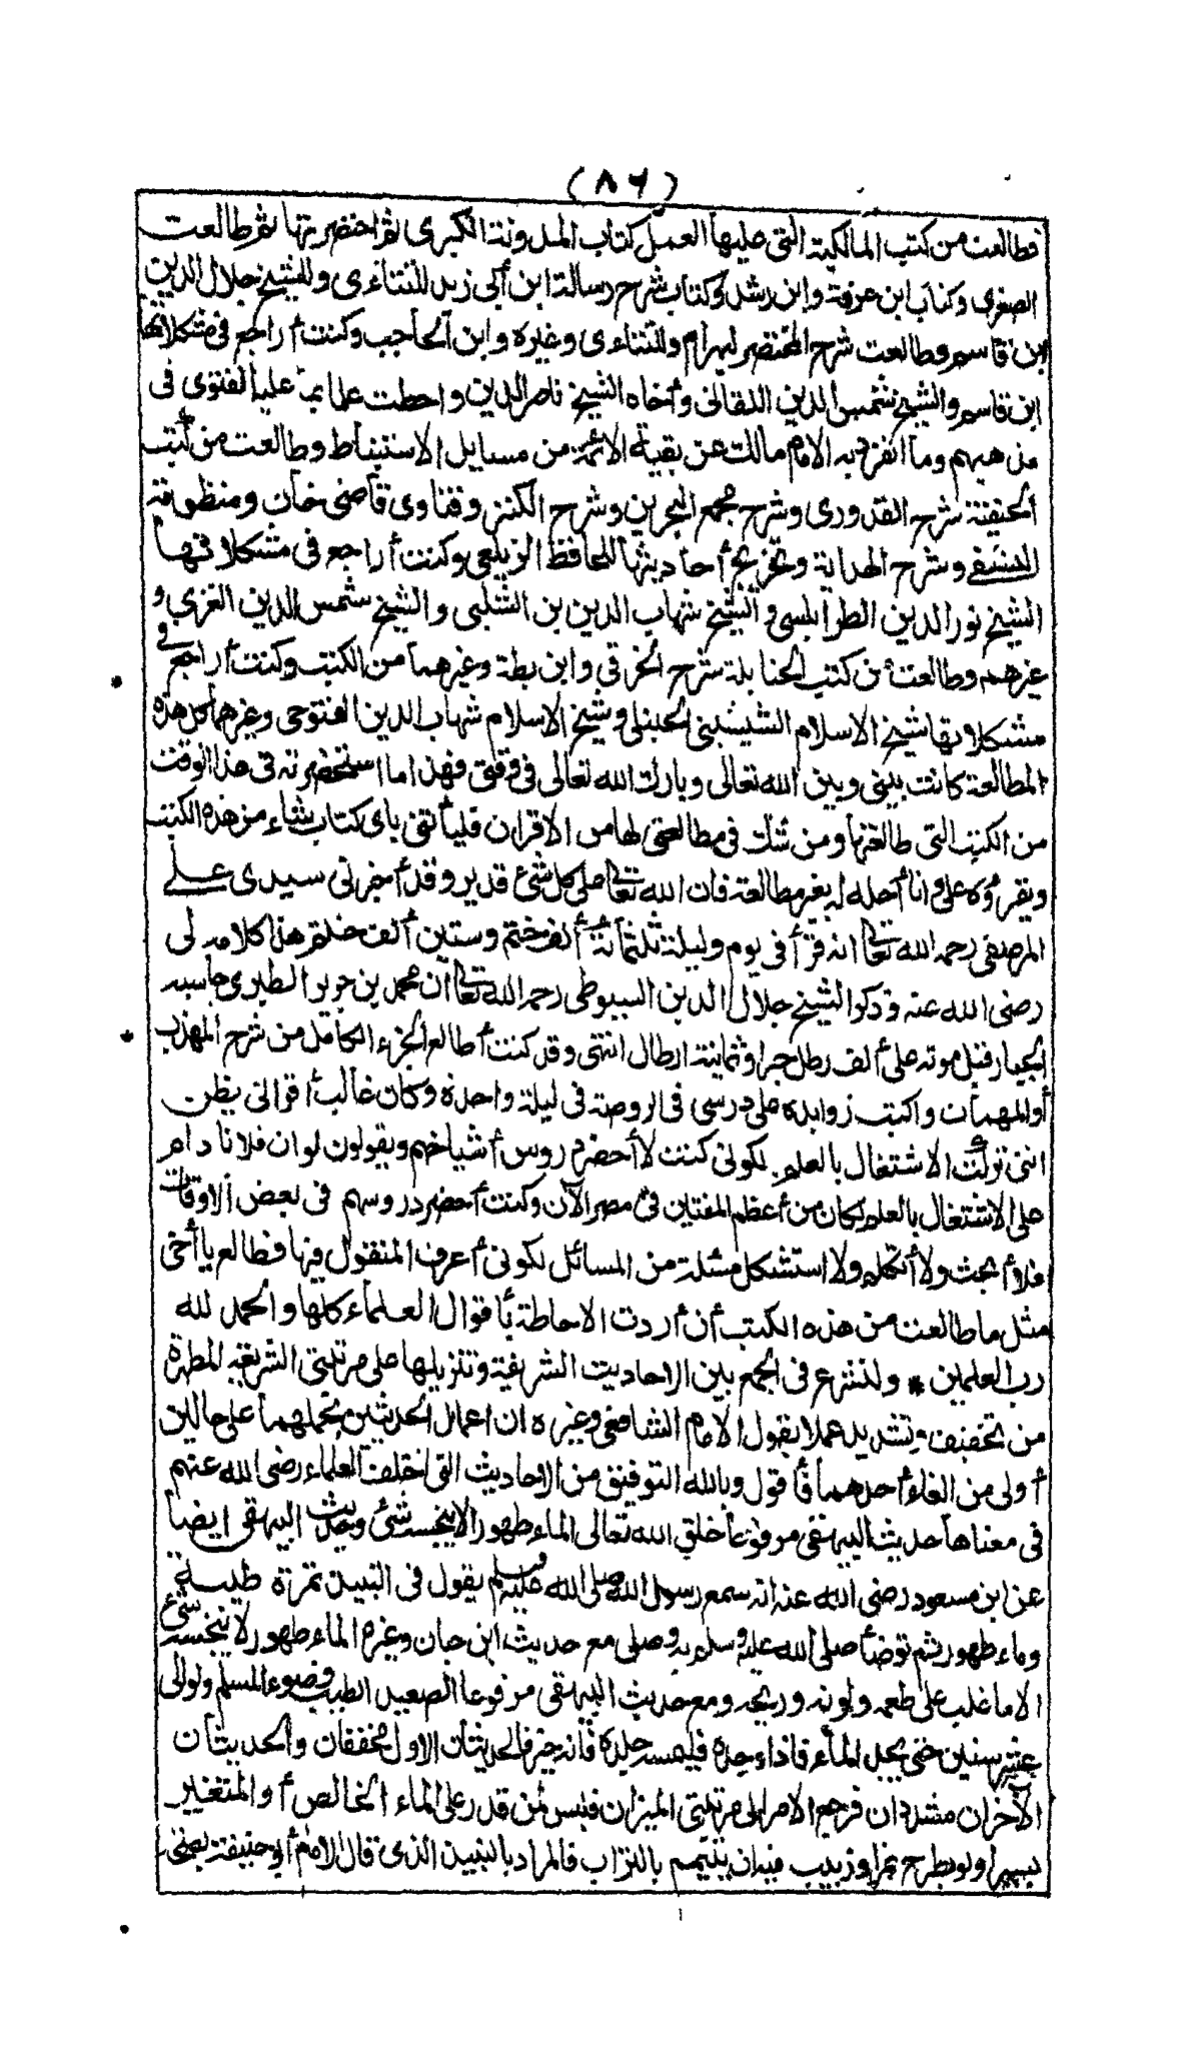 (٨٦)
فطالعت من كتب المالكية التي عليها العمل كتاب المدونة الكبرى ثم اختصرتها ثم طالعت
الصغرى وكتاب ابن عرفة وابن رشد وكتاب شرح رسالة ابن أبي زيد للتتاءى وللشيخ جلال الدين
ابن قاسم وطالعت شرح المختصر لبهرام وللتتاءى وغيره وابن الحاجب وكنت أراجع في مشكلاتها
ابن قاسم والشيخ شمس الدين اللقاني وأخاه الشيخ ناصر الدين واحطت علما بما عليه الفتوى في
مذهبهم وما انفرد به الامام مالك عن بقية الائمة من مسايل الاستنباط وطالعت من كتب
الحنفية شرح القدورى وشرح مجمع البحرين وشرح الكنز وفتاوى قاضي خان ومنظومة
النسفي وشرح الهداية وتخريج أحاديثها للحافظ الزيلعى وكنت أراجع في مشكلاتها
الشيخ نور الدين الطرابلسى والشيخ شهاب الدين بن الشلبى والشيخ شمس الدين الغزى و
غيرهم وطالعت من كتب الحنابلة شرح الخرقي وابن بطة وغيرهما من الكتب وكنت أراجع في
مشكلاتها شيخ الاسلام الشيشينى الحنبلى وشيخ الاسلام شهاب الدين الفتوحى وغيرهما كل هذه
المطالعة كانت بيني وبين الله تعالى وبارك الله تعالى في وقتى فهذا ما استحضرته في هذا الوقت
من الكتب التي طالعتها ومن شك في مطالعتى لها من الاقران فليأتنى باى كتاب شاء من هذه الكتب
ويقرؤه على وانا أحله له بغير مطالعة فان الله تعالى على كل شئ قدير وقد أخبرنى سيدى على
المرصفى رحمه الله تعالى انه قرأ في يوم وليلة ثلثمائة ألف ختم وستين ألف ختمة هذا كلامه لى
رضى الله عنه وذكر الشيخ جلال الدين السيوطى رحمه الله تعالى أن محمد بن جرير الطبرى حاسبه
الجبار قبل موته على ألف رطل حبرا وثمانية ارطال انتهى وقد كنت أطالع الجزء الكامل من شرح المهذب
أو المهمات واكتب زوايده على درسى في الروضة في ليلة واحدة وكان غالب أقرانى يظن
اننى تركت الاشتغال بالعلم لكونى كنت لا أحضر دروس أشياخهم ويقولون لو ان فلانا دام
على الاشتغال بالعلم لكان من أعظم المفتين في مصر الآن وكنت أحضر دروسهم في بعض الاوقات
فلا أبحث ولا أتكلم ولا استشكل مسئلة من المسائل لكونى أعرف المنقول فيها فطالع يا أخى
مثل ما طالعت من هذه الكتب أن أردت الاحاطة بأقوال العلماء كلها والحمد لله
رب العلمين * ولنشرع في الجمع بين الاحاديث الشريفة وتنزيلها على مرتبتى الشريعة المطهرة
من تخفيف وتشديد عملا بقول الامام الشافعى وغيره ان اعمال الحديثين بحملهما على حالين
أولى من الغاء أحدهما فأقول وبالله التوفيق من الاحاديث التى اختلف العلماء رضى الله عنهم
في معناها حديث البيهقى مرفوعا خلق الله تعالى الماء طهورا لا ينجسه شئ وحديث البيهقى ايضا
عن ابن مسعود رضى الله عنه انه سمع رسول الله صلى الله عليه وسلم يقول في النبيذ تمرة طيبة
وماء طهور ثم توضأ صلى الله عليه وسلم به وصلى مع حديث ابن حبان وغيره الماء طهور لا ينجسه شئ
الا ما غلب على طعمه ولونه وريحه ومع حديث البيهقى مرفوعا الصعيد الطيب وضوء المسلم ولو الى
عشر سنين حتى يجد الماء فاذا وجده فليمسه جلده فأنه خير فالحديثان الاول مخففان والحديثان
الآخران مشددان فرجع الامر الى مرتبتى الميزان فليس لمن قدر على الماء الخالص أو المتغير
يسيرا ولو بطرح تمر او زبيب فيه ان يتيمم بالتراب فالمراد بالنبيذ الذى قال الامام أبو حنيفة بصحة